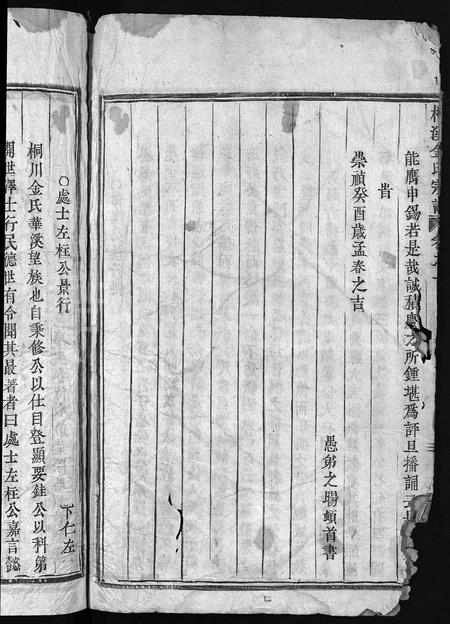 桐溪金氏宗譜
能膺申錫若是哉誠積慶之所鍾堪爲評旦播誦
昔
崇禎癸酉歲孟春之吉
愚弟之賜頓首書
○處士左桂公景行
下仁左
桐川金氏華溪望族也自秉修公以仕目登顯要鈺公以科第
開世澤士行民德世有令聞其最著者曰處士左桂公嘉言懿